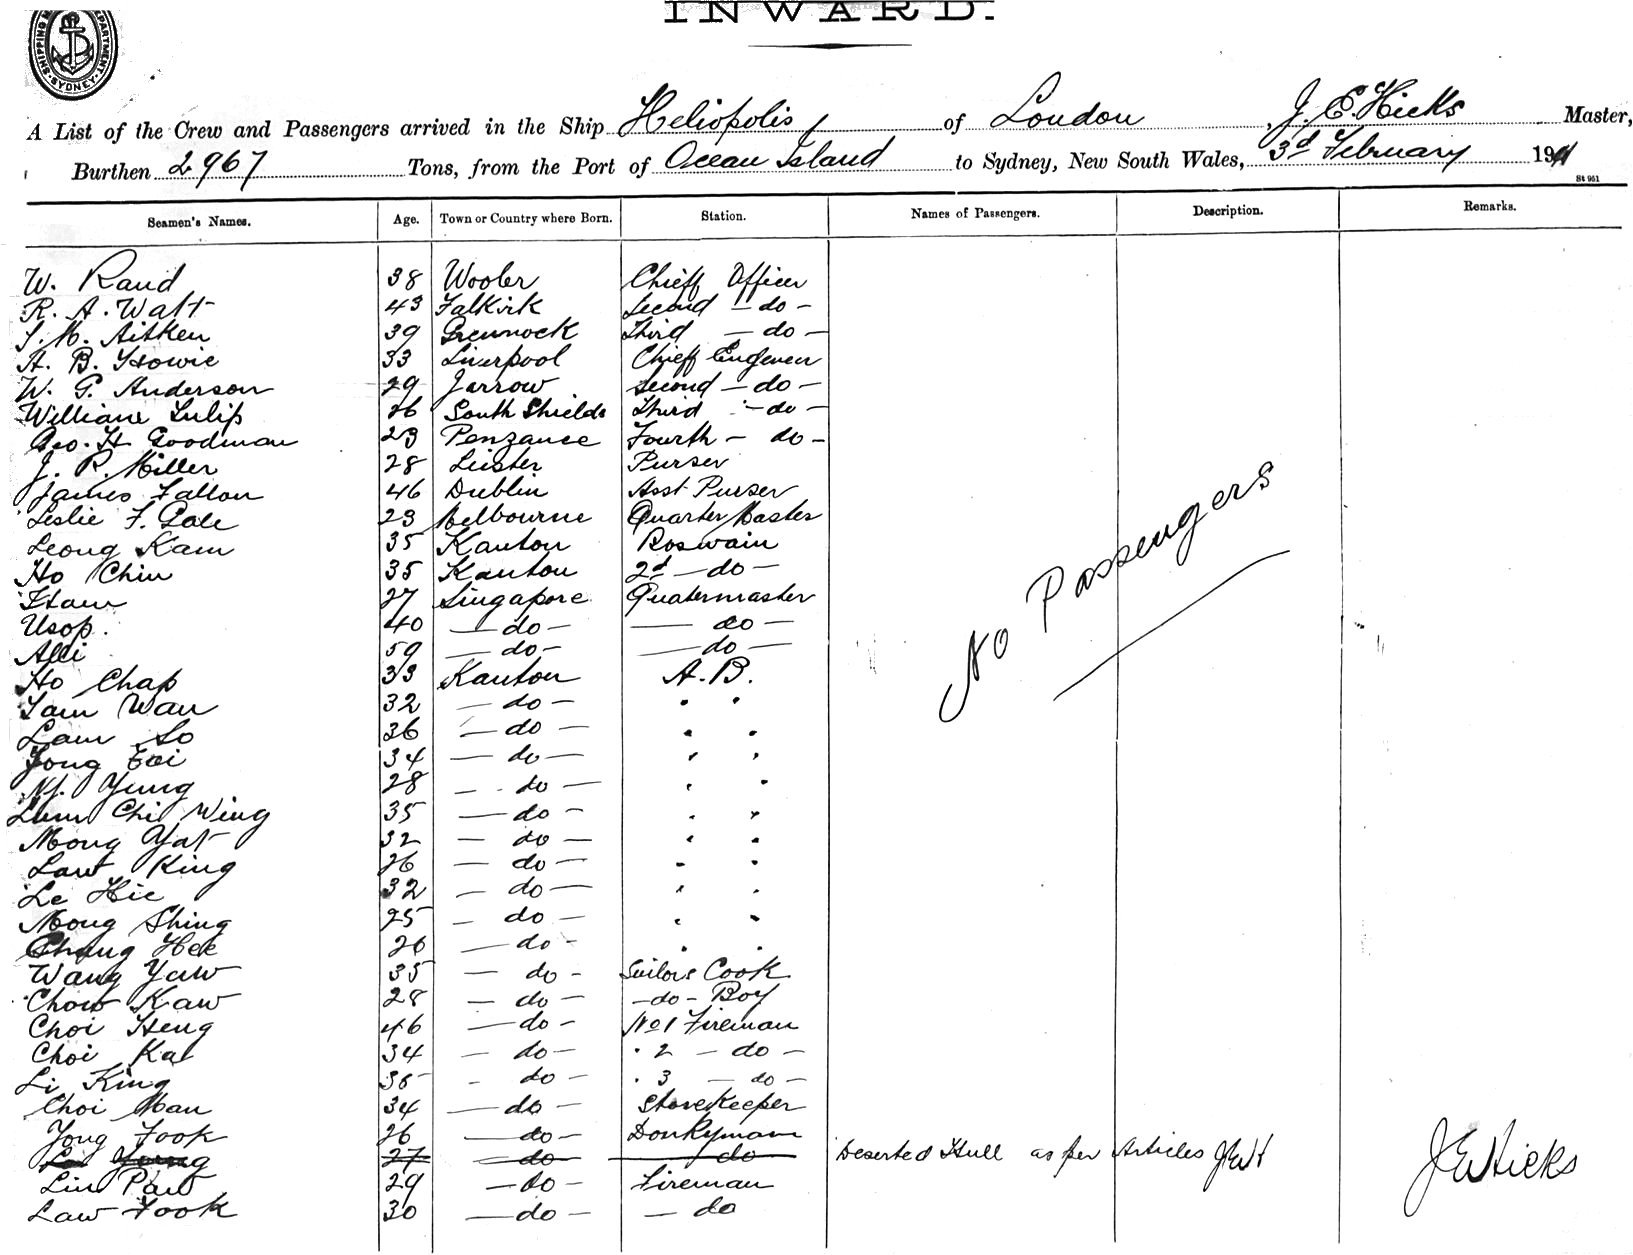 SHIPPING MASTER'S DEPARTMENT · SYDNEY
INWARD.
A List of the Crew and Passengers arrived in the Ship Heliopolis of London, J. E. Hicks Master,
Burthen 2967 Tons, from the Port of Ocean Island to Sydney, New South Wales, 3d February 1911
St 951
Seamen's Names. Age. Town or Country where Born. Station. Names of Passengers. Description. Remarks.
W. Rand 38 Wooler Chieff Officer
R. A. Watt 43 Falkirk Second — do —
J. M. Aitken 39 Greunock Third — do —
A. B. Howie 33 Liverpool Chieff Engeneer
W. G. Anderson 29 Jarrow Second — do —
William Tulip 26 South Shields Third — do —
Geo. H Goodman 23 Penzance Fourth — do —
J. R. Miller 28 Leister Purser
James Fallon 46 Dublin Asst Purser
Leslie F. Gale 23 Melbourne Quarter Master
Leong Kam 35 Kanton Boswain
Ho Chin 35 Kanton 2d — do —
Ham 27 Singapore Quatermaster
Usop. 40 — do — — do —
Alli 59 — do — — do —
Ho Chap 33 Kanton A. B.
Tam Wan 32 — do — " "
Lam So 36 — do — " "
Yong 34 — do — " "
Yung 28 — do — " "
Lum Chi Wing 35 — do — " "
Mong Yat 32 — do — " "
Law King 26 — do — " "
Le Hie 32 — do — " "
Mong Shing 25 — do — " "
Hee 26 — do — " "
Wang Yaw 35 — do — Sailors Cook
Chow Kaw 28 — do — — do — Boy
Choi Heng 46 — do — No 1 Fireman
Choi Kat 34 — do — " 2 — do —
Li King 38 — do — " 3 — do —
Choi Man 34 — do — Storekeeper
Yong Fook 26 — do — Donkyman
Yong 27 — do — — do Deserted Hull as per Articles JEH
Lin Paw 29 — do — Fireman
Law Fook 30 — do — — do
No Passengers
J E Hicks